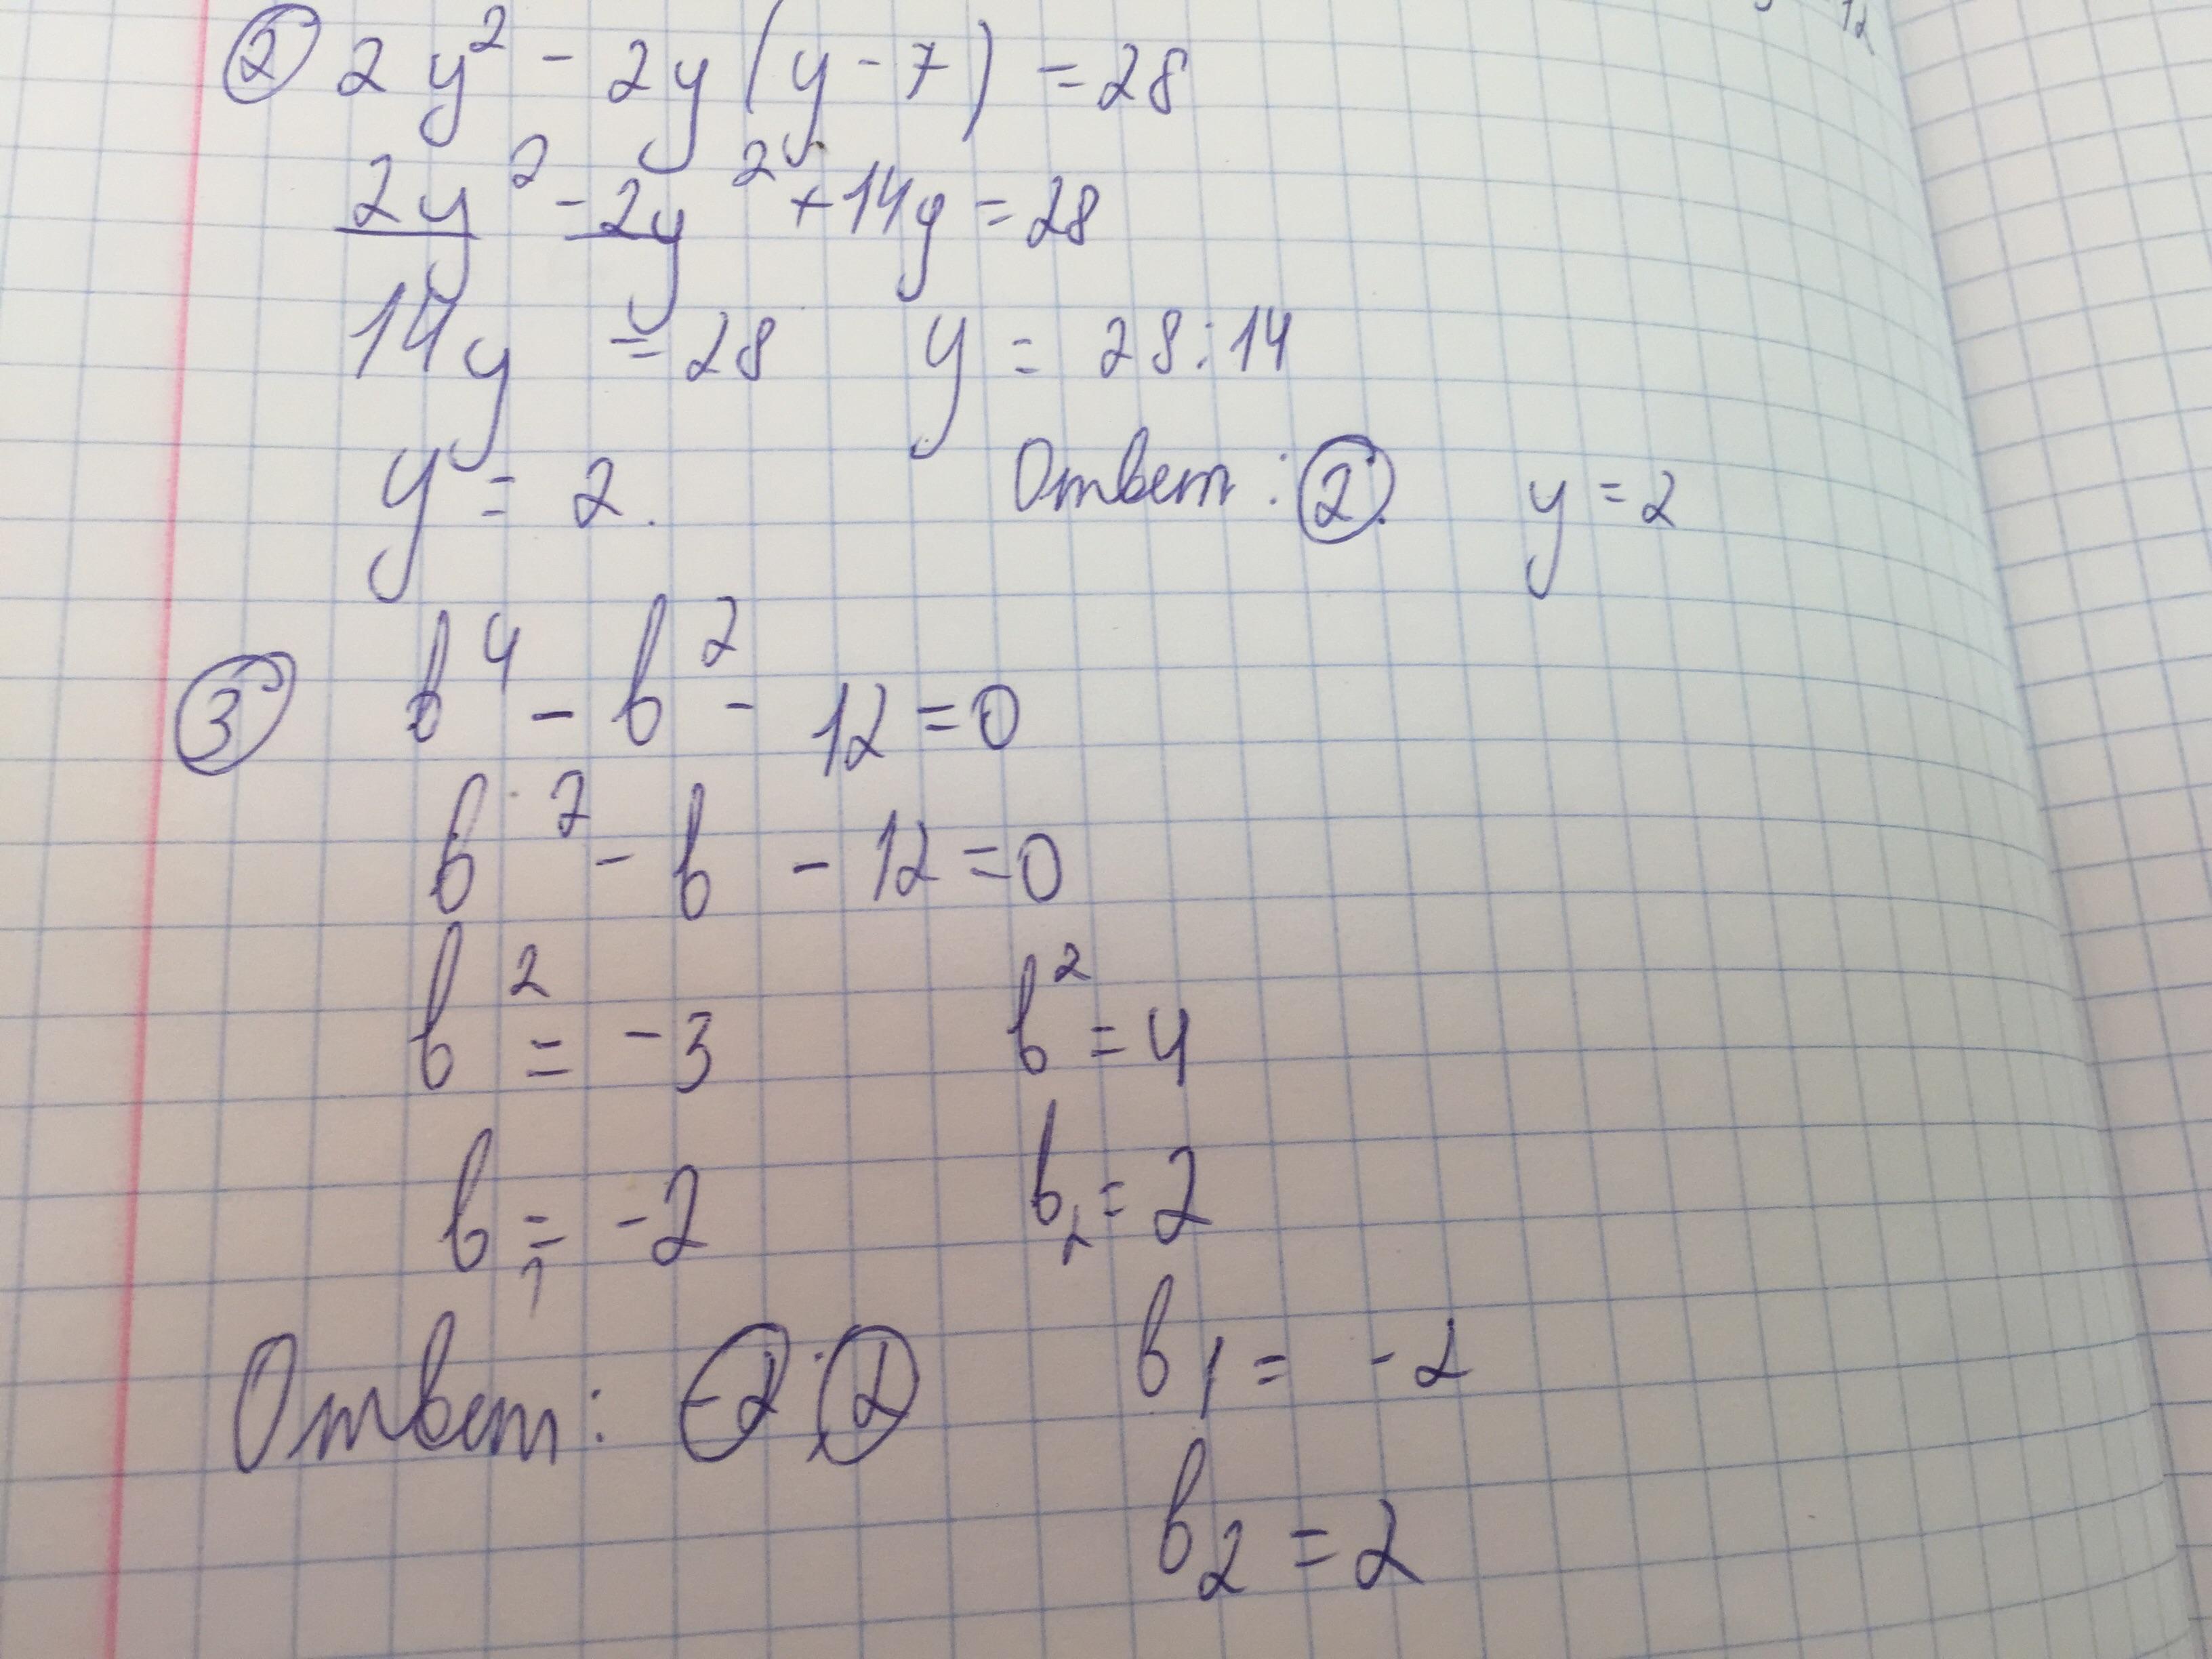 ② 2y² - 2y(y - 7) = 28
2y² - 2y² + 14y = 28
14y = 28 y = 28:14
y = 2. Ответ: 2. y = 2
③ b⁴ - b² - 12 = 0
b² - b - 12 = 0
b² = -3 b² = 4
b₁ = -2 b₂ = 2
Ответ: -2; 2 b₁ = -2
b₂ = 2